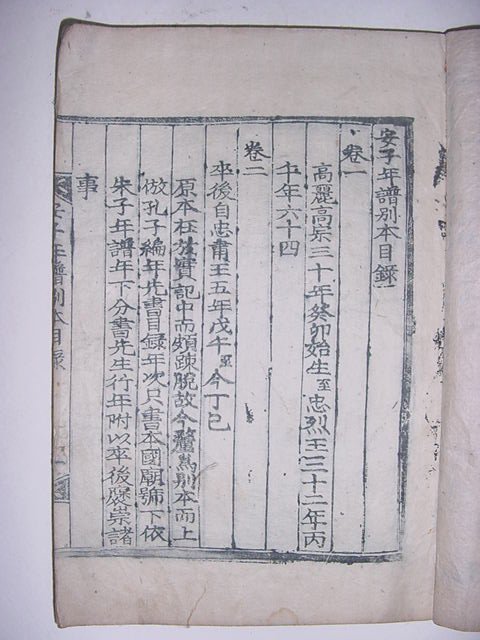 安子年譜別本目錄
卷一
高麗高宗三十年癸卯始生至忠烈王三十二年丙
午年六十四
卷二
卒後自忠肅王五年戊午至今丁巳
原本在於實記中而頗疎脫故今釐爲別本而上
倣孔子編年先書目錄年次只書本國廟號下依
朱子年譜年下分書先生行年附以卒後褒崇諸
事
安子年譜別本目錄